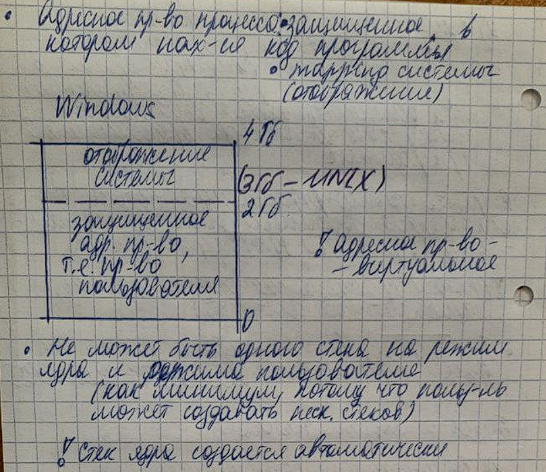 • Адресное пр-во процесса: • защищенное, в
котором нах-ся код программы
• mapping системы
(отображение)
Windows
4 Гб
отображение
системы
(3 Гб – UNIX)
2 Гб
защищенное
адр. пр-во,
т.е. пр-во
пользователя
! адресное пр-во –
– виртуальное
0
• Не может быть одного стека на режим
ядра и режима пользователя
(как минимум, потому что польз-ль
может создавать неск. стеков)
! Стек ядра создается автоматически